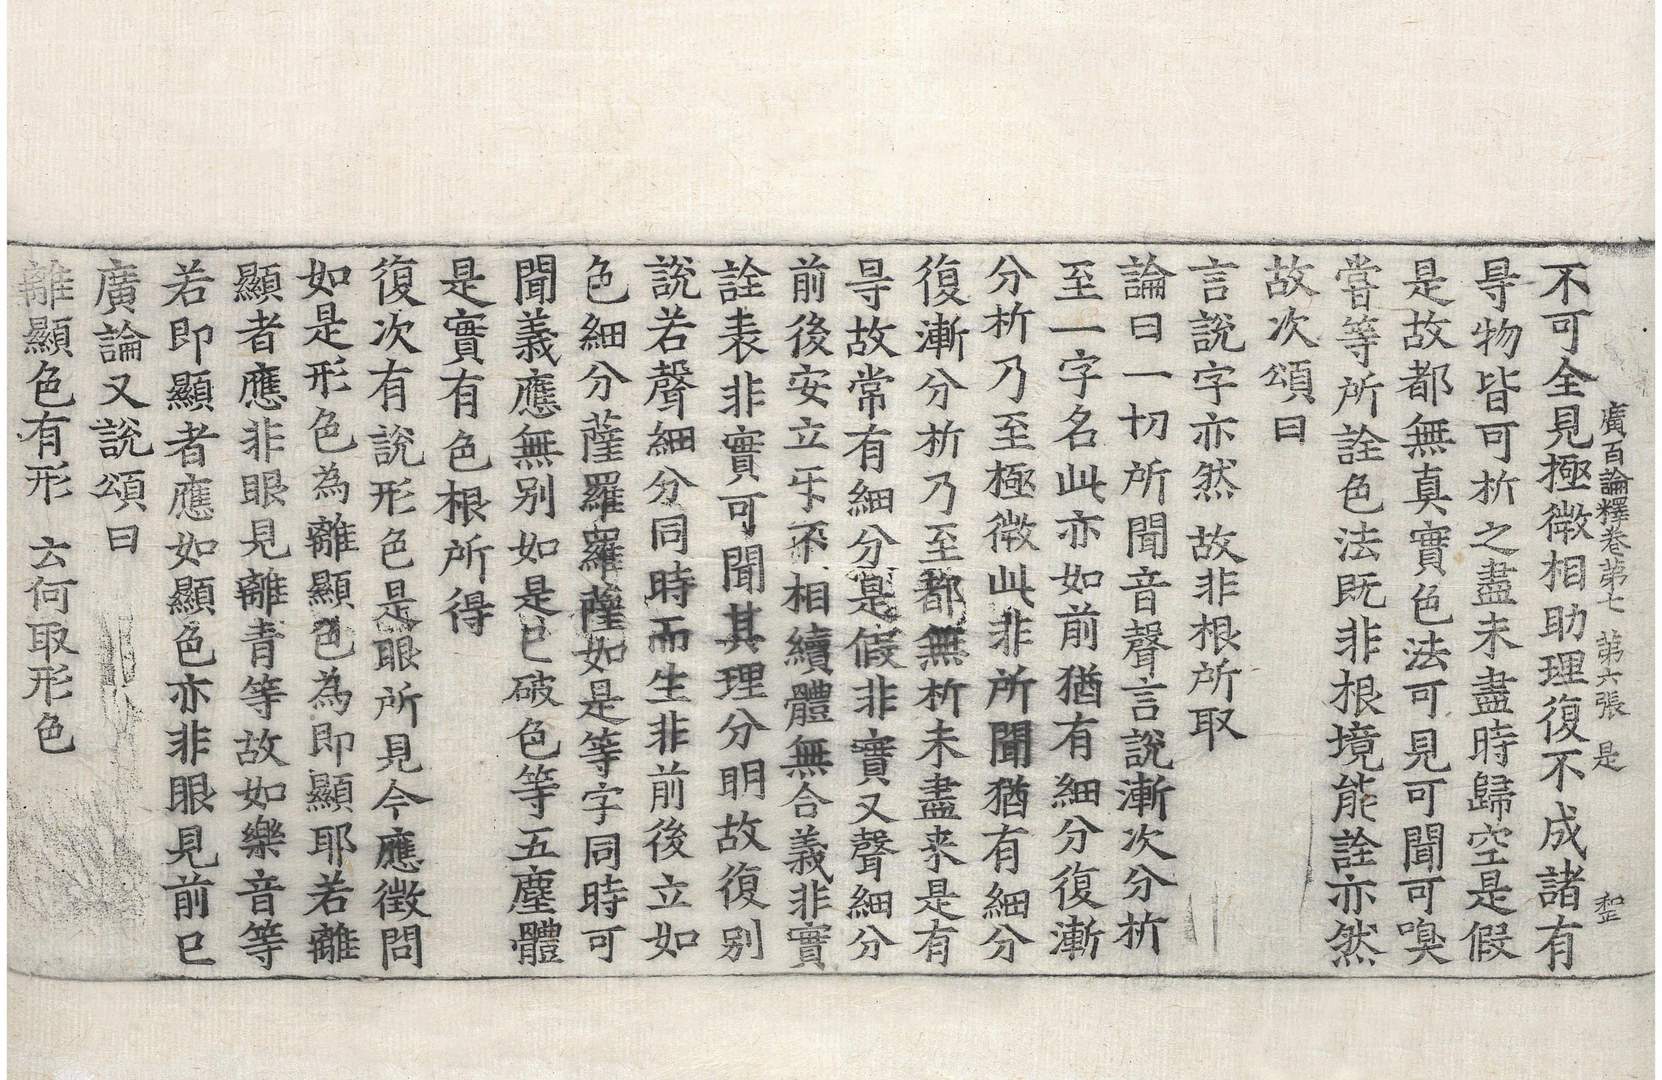 廣百論釋卷第七 第六張 是
不可全見極微相助理復不成諸有
㝵物皆可析之盡未盡時歸空是假
是故都無真實色法可見可聞可嗅
甞等所詮色法既非根境能詮亦然
故次頌曰
言說字亦然 故非根所取
論曰一切所聞音聲言說漸次分析
至一字名此亦如前猶有細分復漸
分析乃至極微此非所聞猶有細分
復漸分析乃至都無析未盡来是有
㝵故常有細分是假非實又聲細分
前後安立㸦不相續體無合義非實
詮表非實可聞其理分明故復別
說若聲細分同時而生非前後立如
色細分薩羅羅薩如是等字同時可
聞義應無別如是已破色等五塵體
是實有色根所得
復次有說形色是眼所見今應徵問
如是形色為離顯色為即顯耶若離
顯者應非眼見離青等故如樂音等
若即顯者應如顯色亦非眼見前已
廣論又說頌曰
離顯色有形 云何取形色